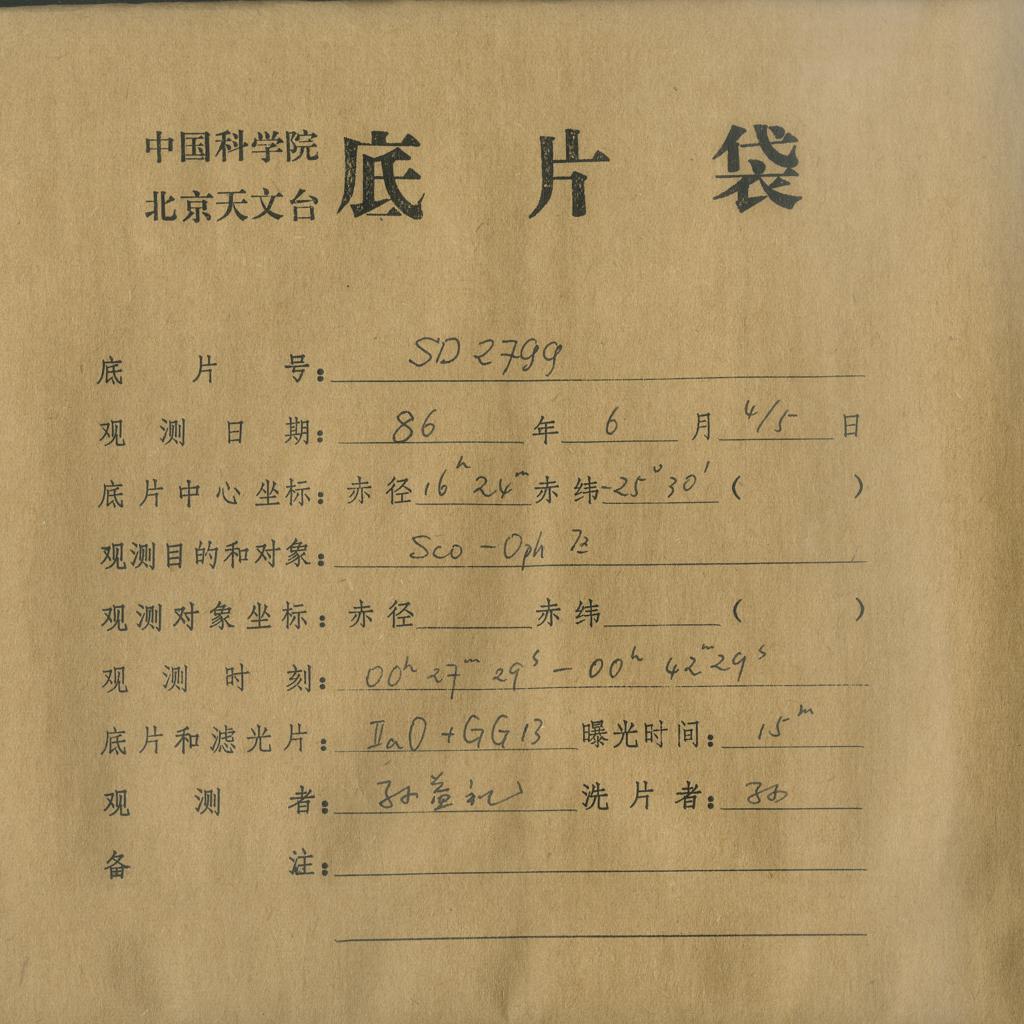 中国科学院
北京天文台
底片袋
底片号：SD 2799
观测日期：86年6月4/5日
底片中心坐标：赤径16ʰ 24ᵐ赤纬-25° 30′（ ）
观测目的和对象：Sco - Oph 区
观测对象坐标：赤径 赤纬 （ ）
观测时刻：00ʰ 27ᵐ 29ˢ - 00ʰ 42ᵐ 29ˢ
底片和滤光片：IIaO + GG13 曝光时间：15ᵐ
观测者：孙益礼 洗片者：孙
备注：